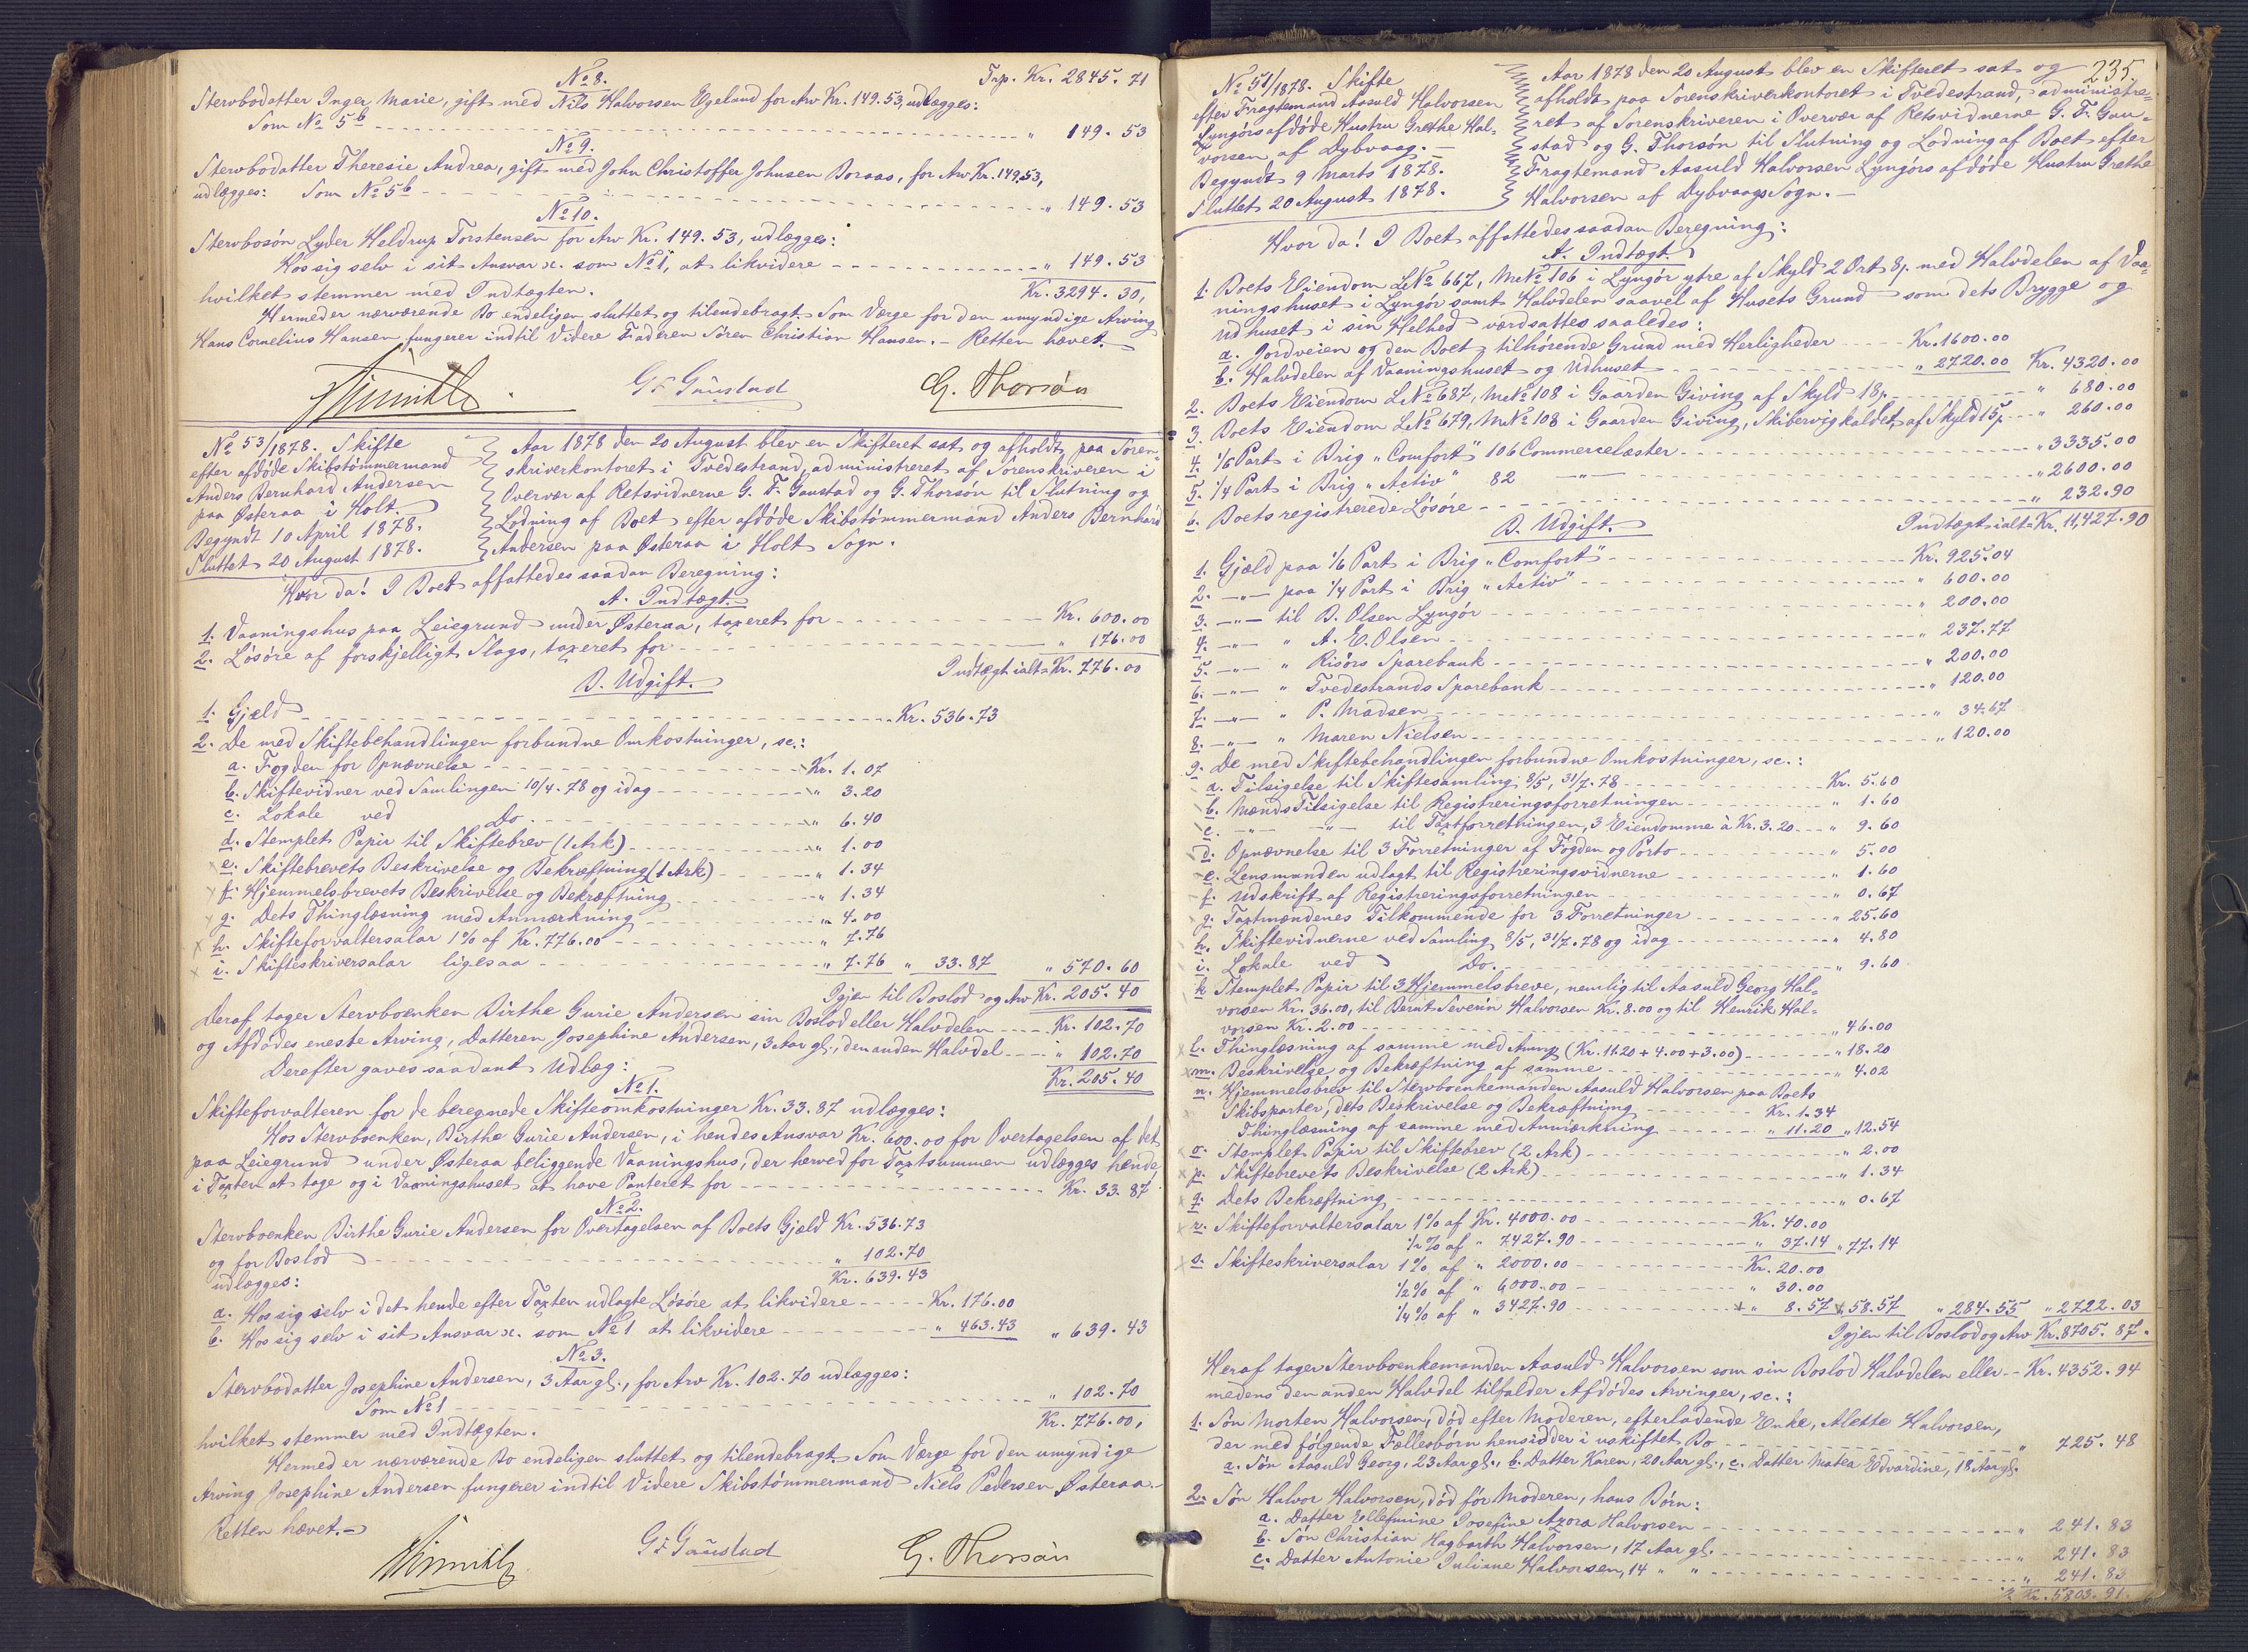 Trp. Kr. 2845. 71
No 8.
Stervbodatter Inger Marie, gift med Nils Halvorsen Egeland for Arv Kr. 149.53, udlægges:
Som No 5b " 149. 53
No 9.
Stervbodatter Theresie Andrea, gift med John Christoffer Johnsen Boraas, for Arv Kr. 149.53,
udlægges: Som No 5b " 149. 53
No 10.
Stervbosøn Lyder Heldrup Torstensen for Arv Kr. 149.53, udlægges:
Hos sig selv i sit Ansvar x. som No 1, at likvidere " 149. 53
hvilket stemmer med Indtægten. Kr. 3294. 30,
Hermed er nærværende Bo endeligen sluttet og tilendebragt. Som Værge for den umyndige Arving
Hans Cornelius Hansen fungerer indtil Videre Faderen Søren Christian Hansen. - Retten hævet.
G F Gaustad G. Thorsøn
No 53/1878. Skifte
efter afdøde Skibstømmermand
Anders Bernhard Andersen
paa Østeraa i Holt.
Begyndt 10 April 1878.
Sluttet 20 August 1878.
Aar 1878 den 20 August blev en Skifteret sat og afholdt paa Soren-
skriverkontoret i Tvedestrand, administreret af Sorenskriveren i
Overvær af Retsvidnerne G. F. Gaustad og G. Thorsøn til Slutning og
Lodning af Boet efter afdøde Skibstømmermand Anders Bernhard
Andersen paa Østeraa i Holt Sogn.
Hvor da! I Boet affattedes saadan Beregning:
A. Indtægt.
1. Vaaningshus paa Leiegrund under Østeraa, taxeret for Kr. 600.00
2. Løsøre af forskjelligt Slags, taxeret for " 176.00
Indtægt ialt Kr. 776.00
B. Udgift.
1. Gjeld Kr. 536.73
2. De med Skiftebehandlingen forbundne Omkostninger, sc.:
a. Fogden for Opnævnelse Kr. 1.07
b. Skiftevidner ved Samlingen 10/4.78 og idag " 3.20
c. Lokale ved Do. " 6.40
d. Stemplet Papir til Skiftebrev (1 Ark) " 1.00
e. Skiftebrevets Beskrivelse og Bekræftning (1 Ark) " 1.34
f. Hjemmelsbrevets Beskrivelse og Bekræftning " 1.34
g. Dets Thinglæsning med Anmærkning " 4.00
h. Skifteforvaltersalar 1% af Kr. 776.00 " 7.76
i. Skifteskriversalar ligesaa " 7.76 " 33.87 " 570.60
Igjen til Boslod og Arv Kr. 205.40
Deraf tager Stervboenken Birthe Gurie Andersen sin Boslod eller Halvdelen Kr. 102.70
og Afdødes eneste Arving, Datteren Josephine Andersen, 3 Aar gl., den anden Halvdel " 102.70
Derefter gaves saadant Udlæg: Kr. 205.40
No 1.
Skifteforvalteren for de beregnede Skifteomkostninger Kr. 33.87 udlægges:
Hos Stervboenken, Birthe Gurie Andersen, i hendes Ansvar Kr. 600.00 for Overtagelsen af det
paa Leiegrund under Østeraa beliggende Vaaningshus, der herved for Taxtsummen udlægges hende,
i Taxten at tage og i Vaaningshuset at have Panteret for Kr. 33.87
No 2.
Stervboenken Birthe Gurie Andersen for Overtagelsen af Boets Gjæld Kr. 536.73
og for Boslod " 102.70
udlægges: Kr. 639.43
a. Hos sig selv i det hende efter Taxten udlagte Løsøre at likvidere Kr. 176.00
b. Hos sig selv i sit Ansvar x. som No 1 at likvidere " 463.43 " 639.43
No 3.
Stervbodatter Josephine Andersen, 3 Aar gl., for Arv Kr. 102.70 udlægges:
Som No 1 " 102.70
hvilket stemmer med Indtægten. Kr. 776.00,
Hermed er nærværende Bo endeligen sluttet og tilendebragt. Som Værge for den umyndige
Arving Josephine Andersen fungerer indtil Videre Skibstømmermand Niels Pedersen Østeraa.
Retten hævet.
G F Gaustad G. Thorsøn
235.
No 51/1878. Skifte
efter Fragtemand Aasuld Halvorsen
Lyngørs afdøde Hustru Grethe Hal-
vorsen af Dybvaag.
Begyndt 9 Marts 1878.
Sluttet 20 August 1878.
Aar 1878 den 20 August blev en Skifteret sat og
afholdt paa Sorenskriverkontoret i Tvedestrand, administre-
ret af Sorenskriveren i Overvær af Retsvidnerne G. F. Gau-
stad og G. Thorsøn til Slutning og Lodning af Boet efter
Fragtemand Aasuld Halvorsen Lyngørs afdøde Hustru Grethe
Halvorsen af Dybvaags Sogn.
Hvor da! I Boet affattedes saadan Beregning:
A. Indtægt.
1. Boets Eiendom LNo 667, MNo 106 i Lyngør ytre af Skyld 2 Ort 8 s. med Halvdelen af Vaa-
ningshuset i Lyngør samt Halvdelen saavel af Husets Grund som dets Brygge og
Udhuset i sin Helhed værdsattes saaledes:
a. Jordveien og den Boet tilhørende Grund med Herligheder Kr. 1600.00
b. Halvdelen af Vaaningshuset og Udhuset " 2720.00 Kr. 4320.00
2. Boets Eiendom LNo 687, MNo 108 i Gaarden Giving af Skyld 18 s. " 680.00
3. Boets Eiendom LNo 679, MNo 108 i Gaarden Giving, Skibervig kaldet, af Skyld 15 s. " 260.00
4. 1/6 Part i Brig "Comfort" 106 Commercelæster " 3335.00
5. 1/4 Part i Brig "Activ" 82 -"- " 2600.00
6. Boets registrerede Løsøre " 232.90
Indtægt ialt Kr. 11,427.90
B. Udgift.
1. Gjæld paa 1/6 Part i Brig "Comfort" Kr. 925.04
2. -"- paa 1/4 Part i Brig "Activ" " 600.00
3. -"- til B. Olsen Lyngør " 200.00
4. -"- " A. E. Olsen " 237.77
5. -"- " Risørs Sparebank " 200.00
6. -"- " Tvedestrands Sparebank " 120.00
7. -"- " P. Madsen " 34.67
8. -"- " Maren Nielsen " 120.00
9. De med Skiftebehandlingen forbundne Omkostninger, sc.:
a. Tilsigelse til Skiftesamling 8/5, 31/7.78 Kr. 5.60
b. Mænds Tilsigelse til Registreringsforretningen " 1.60
c. -"- -"- til Taxtforretningen, 3 Eiendomme à Kr. 3.20 " 9.60
d. Opnævnelse til 3 Forretninger af Fogden og Porto " 5.00
e. Lensmanden udlagt til Registreringsvidnerne " 1.60
f. Udskrift af Registreringsforretningen " 0.67
g. Taxtmændenes Tilkommende for 3 Forretninger " 25.60
h. Skiftevidnerne ved Samling 8/5, 31/7.78 og idag " 4.80
i. Lokale ved Do. " 9.60
k. Stemplet Papir til 3 Hjemmelsbreve, nemlig til Aasuld Georg Hal-
vorsen Kr. 36.00, til Bernt Severin Halvorsen Kr. 8.00 og til Henrik Hal-
vorsen Kr. 2.00 " 46.00
l. Thinglæsning af samme med Anm. (Kr. 11.20 + 4.00 + 3.00) " 18.20
m. Beskrivelse og Bekræftning af samme " 4.02
n. Hjemmelsbrev til Stervboenkemanden Aasuld Halvorsen paa Boets
Skibsparter, dets Beskrivelse og Bekræftning Kr. 1.34
Thinglæsning af samme med Anmærkning " 11.20 " 12.54
o. Stemplet Papir til Skiftebrev (2 Ark) " 2.00
p. Skiftebrevets Beskrivelse (2 Ark) " 1.34
q. Dets Bekræftning " 0.67
r. Skifteforvaltersalar 1% af Kr. 4000.00 Kr. 40.00
1/2% af " 7427.90 " 37.14 " 77.14
s. Skifteskriversalar 1% af " 2000.00 Kr. 20.00
1/2% af " 6000.00 " 30.00
1/4% af " 3427.90 " 8.57 " 58.57 " 284.55 " 2722.03
Igjen til Boslod og Arv Kr. 8705.87.
Heraf tager Stervboenkemanden Aasuld Halvorsen som sin Boslod Halvdelen eller Kr. 4352.94
medens den anden Halvdel tilfalder Afdødes Arvinger, sc.:
1. Søn Morten Halvorsen, død efter Moderen, efterladende Enke, Alette Halvorsen,
der med følgende Fællesbørn hensidder i uskiftet Bo " 725.48
a. Søn Aasuld Georg, 23 Aar gl., b. Datter Karen, 20 Aar gl., c. Datter Matea Edvardine, 18 Aar gl.
2. Søn Halvor Halvorsen, død før Moderen, hans Børn:
a. Datter Ellefmine Josefine Azora Halvorsen " 241.83
b. Søn Christian Hagbarth Halvorsen, 17 Aar gl. " 241.83
c. Datter Antonie Juliane Halvorsen, 14 " " " 241.83
Kr. 5803.91.